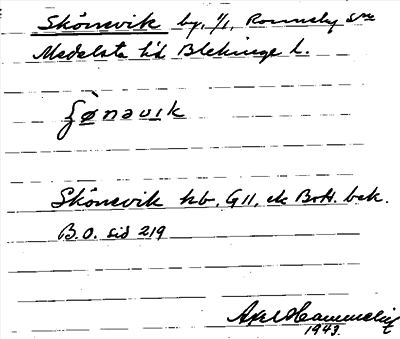 Skönevik by, 1/1, Ronneby sn
Medelsta hd Blekinge l.
ʃø̀nəvik
Skönevik hb, G 11, ek Bott. bek.
B.O. sid 219
Axel Hammelin
1943.